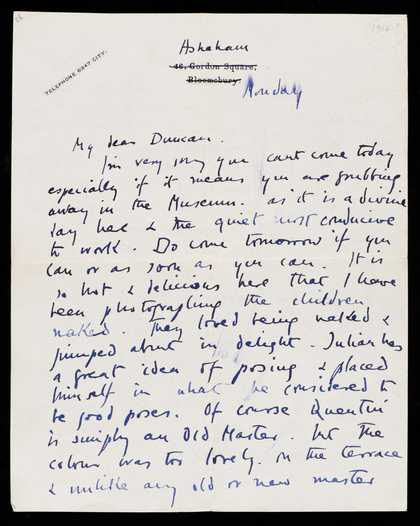 TELEPHONE 6947 CITY.
Asheham
46, Gordon Square,
Bloomsbury
Monday
My dear Duncan.
I'm very sorry you can't come today
especially if it means you are grubbing
away in the Museum. as it is a divine
day here & the quiet most conducive
to work. Do come tomorrow if you
can or as soon as you can. It is
so hot & delicious here that I have
been photographing the children
naked. They loved being naked &
jumped about in delight. Julian has
a great idea of posing & placed
himself in what he considered to
be good poses. Of course Quentin
is simply an Old Master. but the
colour was too lovely. on the terrace
& unlike any old or new master